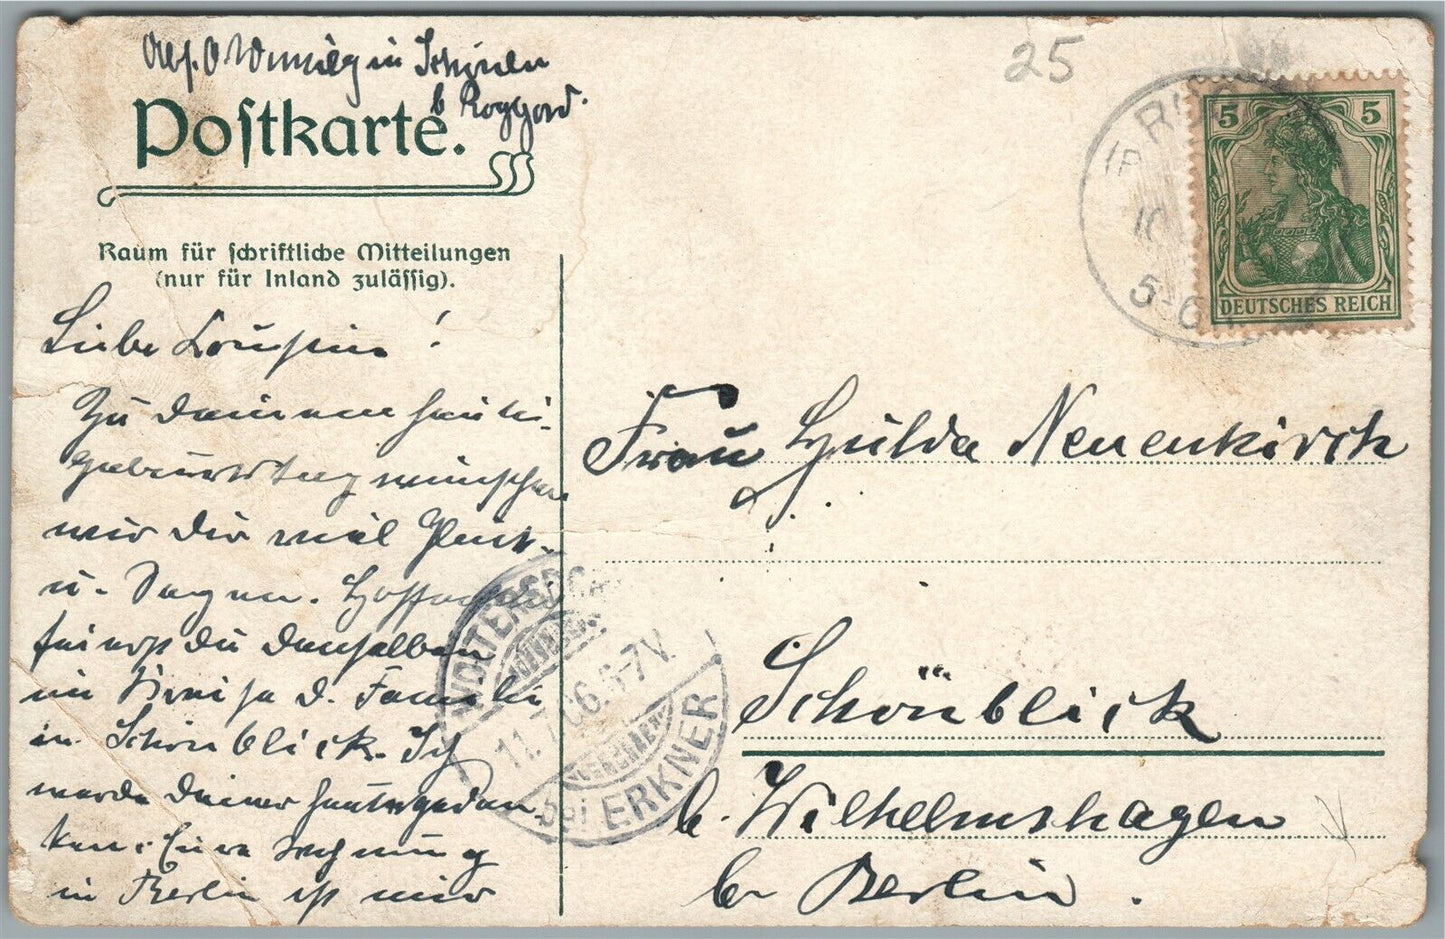 Abs. O Wernieg in Schönen
b Roggow.
Postkarte.
Raum für schriftliche Mitteilungen
(nur für Inland zulässig).
25
5 5
DEUTSCHES REICH
10
5-6
Liebe Cousine!
Zu Deinem heuti-
Geburtstag wünschen
wir Dir viel Glück
u. Segen. Hoffentlich
feierst Du denselben
im Kreise d. Familie
in Schönblick. Ich
werde Deiner heute geden
ken. Eure Wohnung
in Berlin ist mir
Frau Hulda Neuenkirch
Schönblick
b. Wilhelmshagen
b. Berlin.
WOLTERSDORF
11.7.06. 6-7V.
bei ERKNER